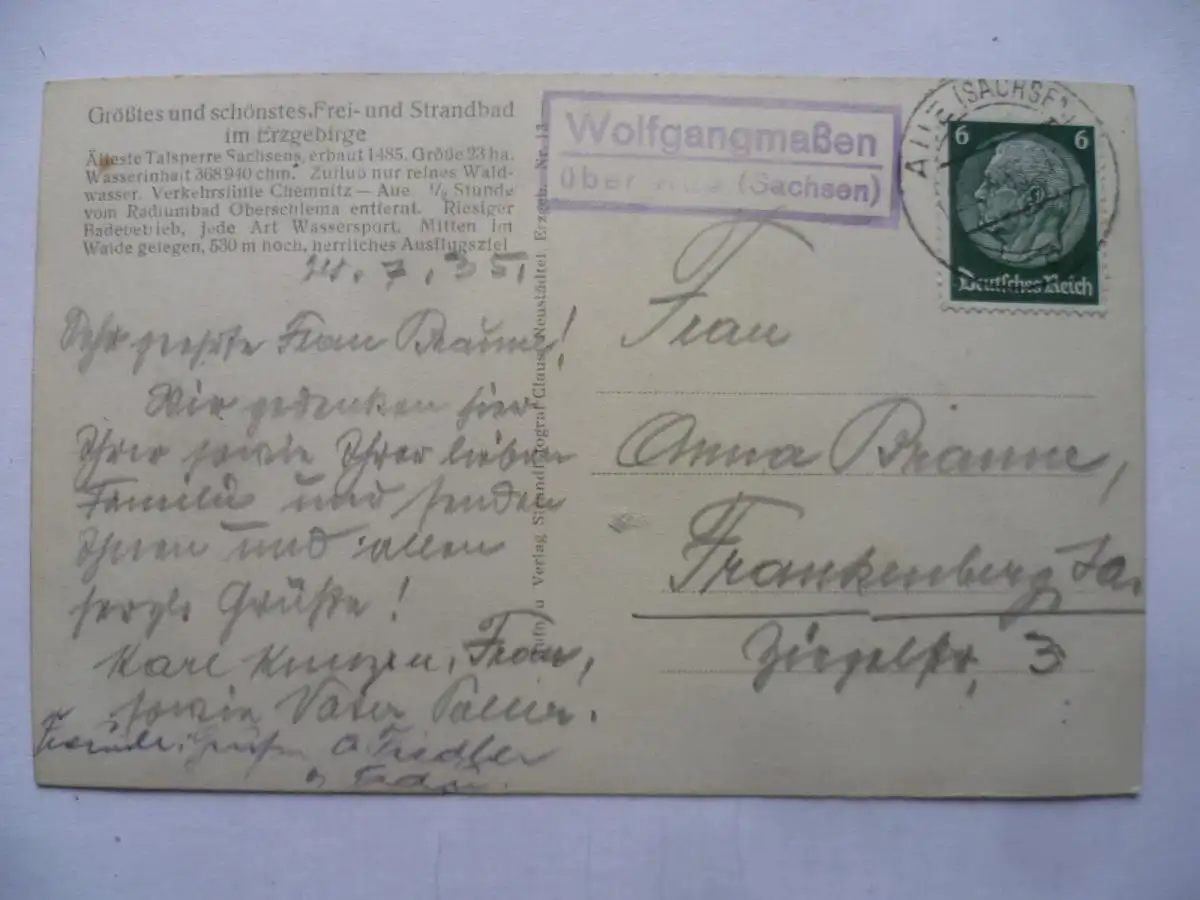 Größtes und schönstes Frei- und Strandbad
im Erzgebirge
Älteste Talsperre Sachsens, erbaut 1485. Größe 23 ha.
Wasserinhalt 368940 cbm. Zufluß nur reines Wald-
wasser. Verkehrslinie Chemnitz — Aue Stunde
vom Radiumbad Oberschlema entfernt. Riesiger
Badebetrieb, jede Art Wassersport. Mitten im
Walde gelegen, 530 m hoch, herrliches Ausflugsziel
7. 35.
Sehr geehrte Frau Braune!
Wir gedenken hier
Ihrer sowie Ihrer lieben
Familie und senden
Ihnen und allen
herzl. Grüße!
Karl Kunzen, Frau,
sowie Vater
Grüßen Fiedler
u. Frau.
Verlag Strandfotograf Claus, Neustädtel, Erzgeb. Nr. 13
Wolfgangmaßen
über Aue (Sachsen)
AUE (SACHSEN)
6 6
Deutsches Reich
Frau
Anna Braune,
Frankenberg Sa.
Ziegelstr. 3